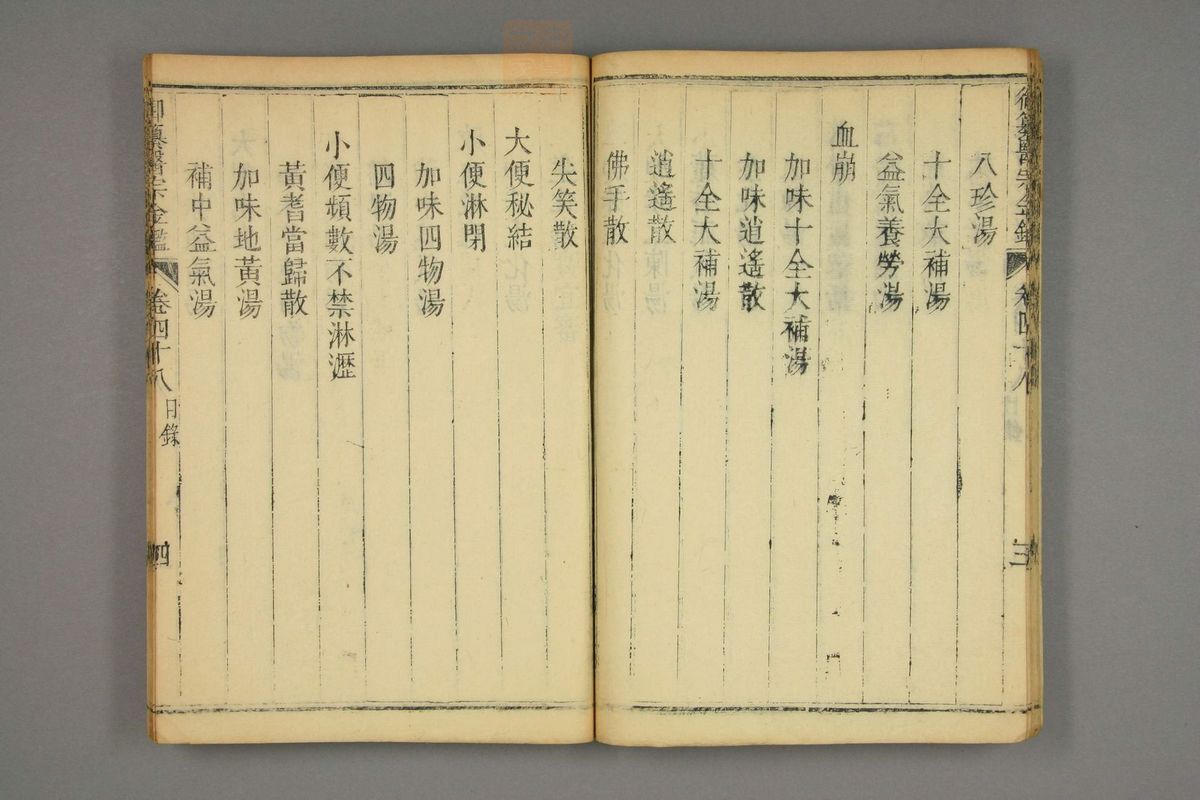 八珍湯
十全大補湯
益氣養勞湯
血崩
加味十全大補湯
加味逍遙散
十全大補湯
逍遙散
佛手散
失笑散
大便秘結
小便淋閉
加味四物湯
四物湯
小便頻數不禁淋瀝
黃耆當歸散
加味地黃湯
補中益氣湯
御纂醫宗金鑑 卷四十八 目錄 四